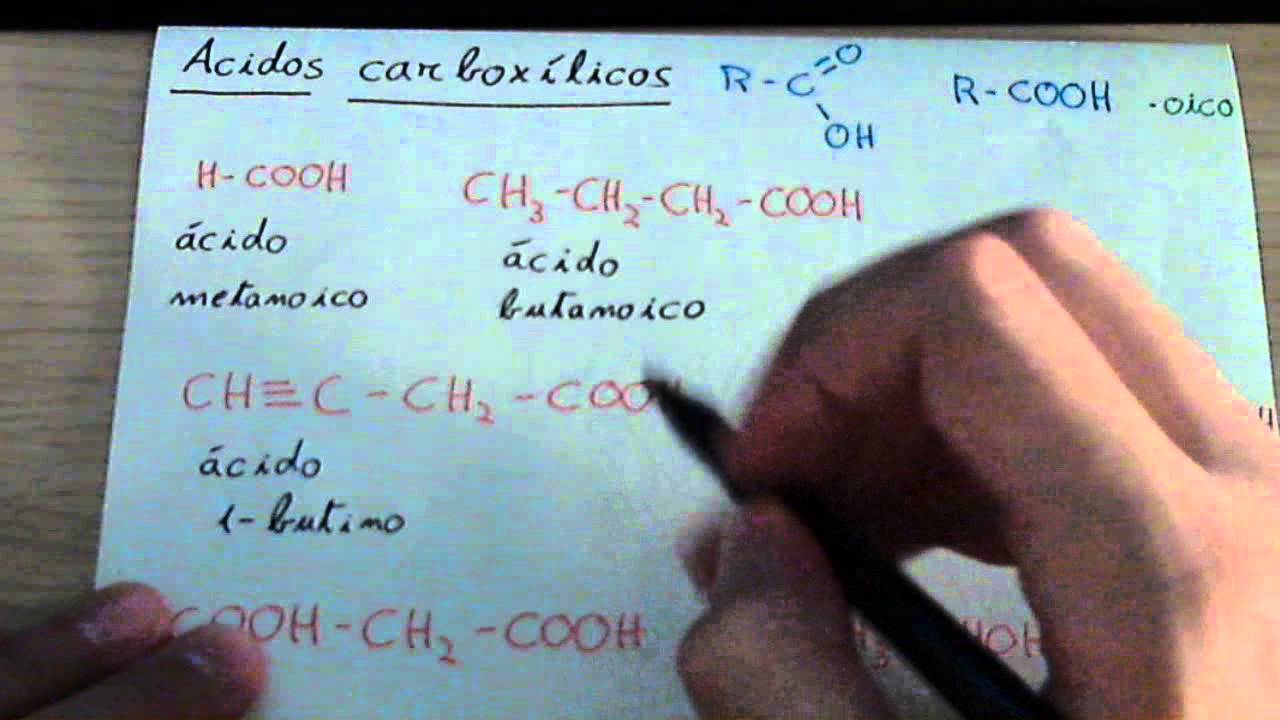 Acidos carboxílicos R-C=O OH R-COOH -oico
H-COOH
ácido
metanoico
CH3-CH2-CH2-COOH
ácido
butanoico
CH≡C-CH2-COO
ácido
1-butino
COOH-CH2-COOH